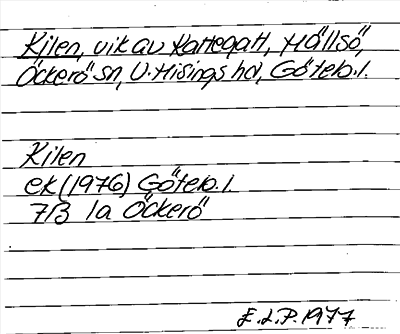 Kilen, vik av Kattegatt, Hällsö,
Öckerö sn, V. Hisings hd, Göteb. l.
Kilen
ek (1976) Göteb. l.
7B 1a Öckerö
E.L.P. 1977